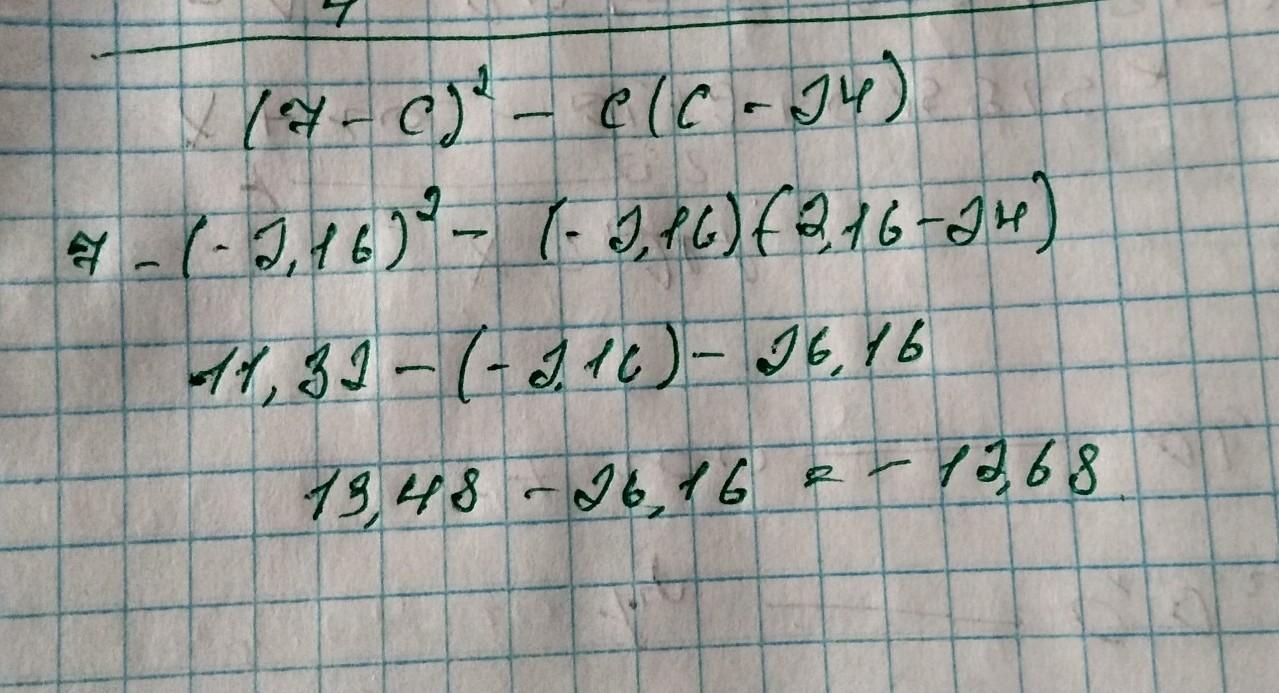 (7 - c)² - c(c - 24)
7 - (-2,16)² - (-2,16)(2,16-24)
11,32 - (-2,16) - 26,16
13,48 - 26,16 = - 12,68